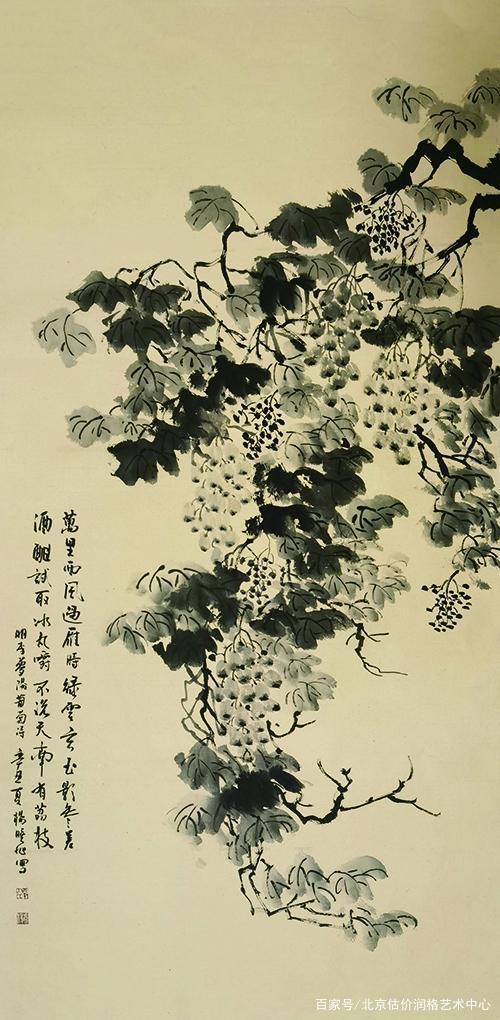 萬里西風過雁時綠雲玄玉影参差
酒酣試取冰丸嚼不说天南有荔枝
明李夢陽葡萄诗 辛丑夏 楊 寫
百家号/北京估价润格艺术中心